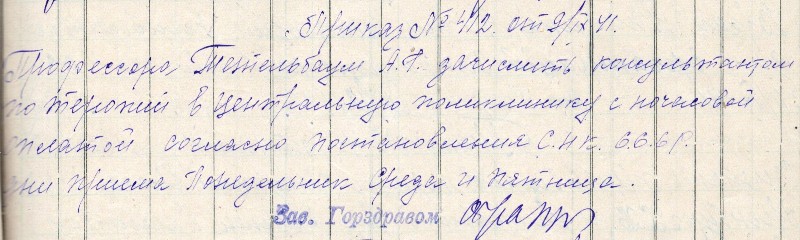 Приказ № 412. от 9/IX 41.
Профессора Тетельбаум А.Г. зачислить консультантом
по терапии в Центральную поликлинику с почасовой
оплатой согласно постановления С.Н.К. С.С.С.Р.
дни приема Понедельник Среда и пятница.
Зав. Горздравом